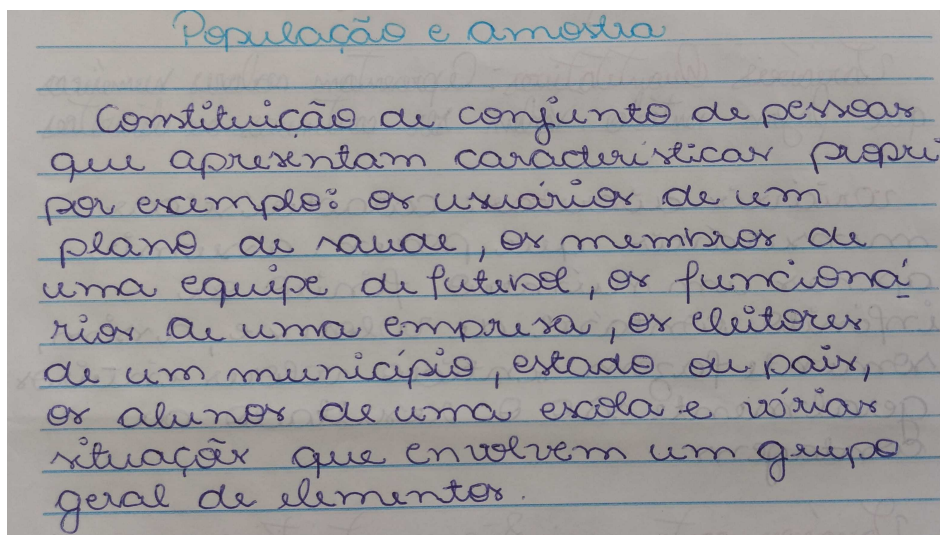 População e amostra
Constituição de conjunto de pessoas
que apresentam características propri
por exemplo: os usuários de um
plano de saude, os membros de
uma equipe de futebol, os funcioná
rios de uma empresa, os eleitores
de um município, estado ou país,
os alunos de uma escola e várias
situações que envolvem um grupo
geral de elementos.